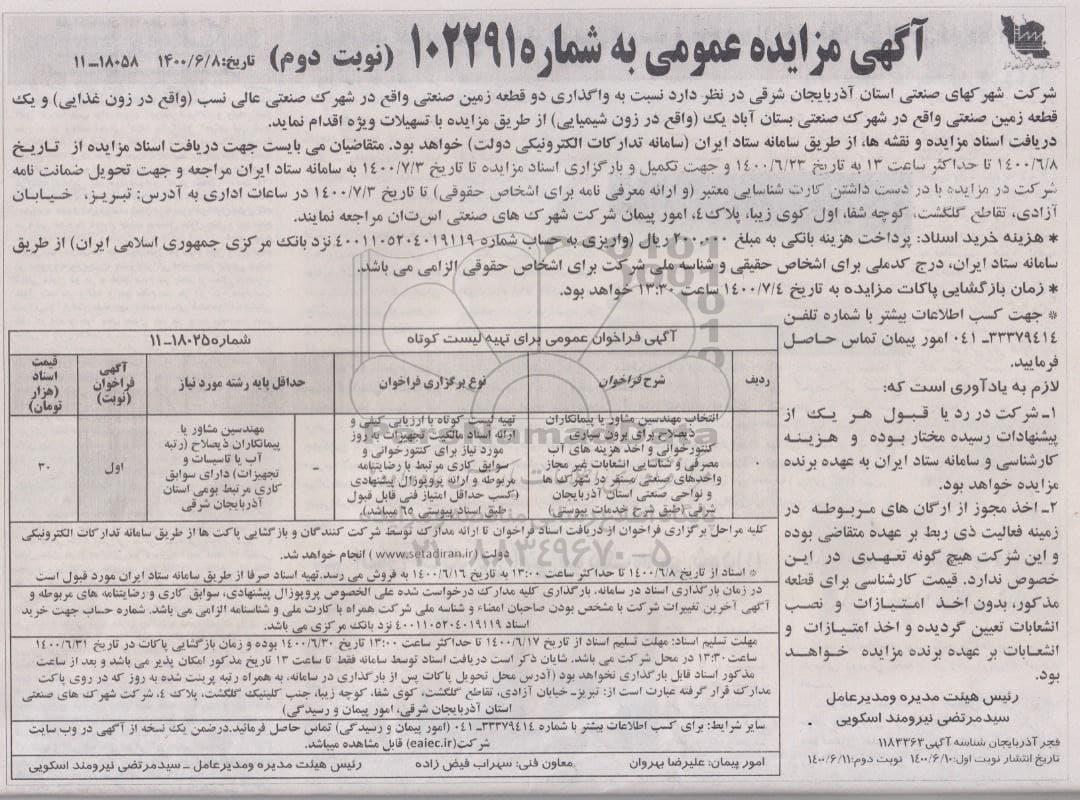 آگهی مزایده عمومی به شماره ۱۰۲۲۹۱ (نوبت دوم) تاریخ: ۱۴۰۰/۶/۸ ۱۸۰۵۸-۱۱
شرکت شهرکهای صنعتی استان آذربایجان شرقی در نظر دارد نسبت به واگذاری دو قطعه زمین صنعتی واقع در شهرک صنعتی عالی نسب (واقع در زون غذایی) و یک
قطعه زمین صنعتی واقع در شهرک صنعتی بستان آباد یک (واقع در زون شیمیایی) از طریق مزایده با تسهیلات ویژه اقدام نماید.
دریافت اسناد مزایده و نقشه ها، از طریق سامانه ستاد ایران (سامانه تدارکات الکترونیکی دولت) خواهد بود. متقاضیان می بایست جهت دریافت اسناد مزایده از تاریخ
۱۴۰۰/۶/۸ تا حداکثر ساعت ۱۳ به تاریخ ۱۴۰۰/۶/۲۳ و جهت تکمیل و بارگزاری اسناد مزایده تا تاریخ ۱۴۰۰/۷/۳ به سامانه ستاد ایران مراجعه و جهت تحویل ضمانت نامه
شرکت در مزایده با در دست داشتن کارت شناسایی معتبر (و ارائه معرفی نامه برای اشخاص حقوقی) تا تاریخ ۱۴۰۰/۷/۳ در ساعات اداری به آدرس: تبریز، خیابان
آزادی، تقاطع گلگشت، کوچه شفا، اول کوی زیبا، پلاک۴، امور پیمان شرکت شهرک های صنعتی استان مراجعه نمایند.
* هزینه خرید اسناد: پرداخت هزینه بانکی به مبلغ ۲۰۰،۰۰۰ ریال (واریزی به حساب شماره ۴۰۰۱۱۰۵۲۰۴۰۱۹۱۱۹ نزد بانک مرکزی جمهوری اسلامی ایران) از طریق
سامانه ستاد ایران، درج کدملی برای اشخاص حقیقی و شناسه ملی شرکت برای اشخاص حقوقی الزامی می باشد.
* زمان بازگشایی پاکات مزایده به تاریخ ۱۴۰۰/۷/۴ ساعت ۱۳:۳۰ خواهد بود.
* جهت کسب اطلاعات بیشتر با شماره تلفن
۳۳۳۷۹۴۱۴-۰۴۱ امور پیمان تماس حاصل
فرمایید.
لازم به یادآوری است که:
۱- شرکت در رد یا قبول هر یک از
پیشنهادات رسیده مختار بوده و هزینه
کارشناسی و سامانه ستاد ایران به عهده برنده
مزایده خواهد بود.
۲- اخذ مجوز از ارگان های مربوطه در
زمینه فعالیت ذی ربط بر عهده متقاضی بوده
و این شرکت هیچ گونه تعهدی در این
خصوص ندارد. قیمت کارشناسی برای قطعه
مذکور، بدون اخذ امتیازات و نصب
انشعابات تعیین گردیده و اخذ امتیازات و
انشعابات بر عهده برنده مزایده خواهد
بود.
رئیس هیئت مدیره ومدیرعامل
سیدمرتضی نیرومند اسکویی
فجر آذربایجان شناسه آگهی ۱۱۸۳۳۶۳
تاریخ انتشار نوبت اول: ۱۴۰۰/۶/۱۰ نوبت دوم: ۱۴۰۰/۶/۱۱
آگهی فراخوان عمومی برای تهیه لیست کوتاه شماره ۱۸۰۲۵-۱۱
ردیف شرح فراخوان نوع برگزاری فراخوان حداقل پایه رشته مورد نیاز آگهی فراخوان (نوبت) قیمت اسناد (هزار تومان)
۰
انتخاب مهندسین مشاور یا پیمانکاران
ذیصلاح برای برون سپاری
کنتورخوانی و اخذ هزینه های آب
مصرفی و شناسایی انشعابات غیر مجاز
واحدهای صنعتی مستقر در شهرک ها
و نواحی صنعتی استان آذربایجان
شرقی (طبق شرح خدمات پیوستی)
تهیه لیست کوتاه با ارزیابی کیفی و
ارائه اسناد مالکیت تجهیزات به روز
مورد نیاز برای کنتورخوانی و
سوابق کاری مرتبط با رضایتنامه
مربوطه و ارائه پروپوزال پیشنهادی
(کسب حداقل امتیاز فنی قابل قبول
طبق اسناد پیوستی ۶۵ میباشد).
-
مهندسین مشاور یا
پیمانکاران ذیصلاح (رتبه
آب یا تاسیسات و
تجهیزات) دارای سوابق
کاری مرتبط بومی استان
آذربایجان شرقی
اول
۳۰
کلیه مراحل برگزاری فراخوان از دریافت اسناد فراخوان تا ارائه مدارک توسط شرکت کنندگان و بازگشایی پاکت ها از طریق سامانه تدارکات الکترونیکی
دولت (www.setadiran.ir) انجام خواهد شد.
* اسناد از تاریخ ۱۴۰۰/۶/۸ تا حداکثر ساعت ۱۳:۰۰ به تاریخ ۱۴۰۰/۶/۱۶ به فروش می رسد. تهیه اسناد صرفا از طریق سامانه ستاد ایران مورد قبول است
در زمان بارگذاری اسناد در سامانه، بارگذاری کلیه مدارک درخواست شده علی الخصوص پروپوزال پیشنهادی، سوابق کاری و رضایتنامه های مربوطه و
آگهی آخرین تغییرات شرکت با مشخص بودن صاحبان امضاء و شناسه ملی شرکت همراه با کارت ملی و شناسنامه الزامی می باشد. شماره حساب جهت خرید
اسناد ۴۰۰۱۱۰۵۲۰۴۰۱۹۱۱۹ نزد بانک مرکزی می باشد.
مهلت تسلیم اسناد: مهلت تسلیم اسناد از تاریخ ۱۴۰۰/۶/۱۷ تا حداکثر ساعت ۱۳:۰۰ تاریخ ۱۴۰۰/۶/۳۰ بوده و زمان بازگشایی پاکات در تاریخ ۱۴۰۰/۶/۳۱
ساعت ۱۳:۳۰ در محل شرکت می باشد. شایان ذکر است دریافت اسناد توسط سامانه فقط تا ساعت ۱۳ تاریخ مذکور امکان پذیر می باشد و بعد از ساعت
مذکور اسناد قابل بارگذاری نخواهد بود (آدرس محل تحویل پاکات پس از بارگذاری در سامانه، به همراه رتبه پرینت شده به روز که در روی پاکت
مدارک قرار گرفته عبارت است از: تبریز- خیابان آزادی، تقاطع گلگشت، کوی شفا، کوچه زیبا، جنب کلینیک گلگشت، پلاک ۴، شرکت شهرک های صنعتی
استان آذربایجان شرقی، امور پیمان و رسیدگی)
سایر شرایط: برای کسب اطلاعات بیشتر با شماره ۳۳۳۷۹۴۱۴-۰۴۱ (امور پیمان و رسیدگی) تماس حاصل فرمائید.درضمن یک نسخه از آگهی در وب سایت
شرکت (eaiec.ir) قابل مشاهده میباشد.
امور پیمان: علیرضا بهروان معاون فنی: سهراب فیض زاده رئیس هیئت مدیره ومدیرعامل - سیدمرتضی نیرومند اسکویی